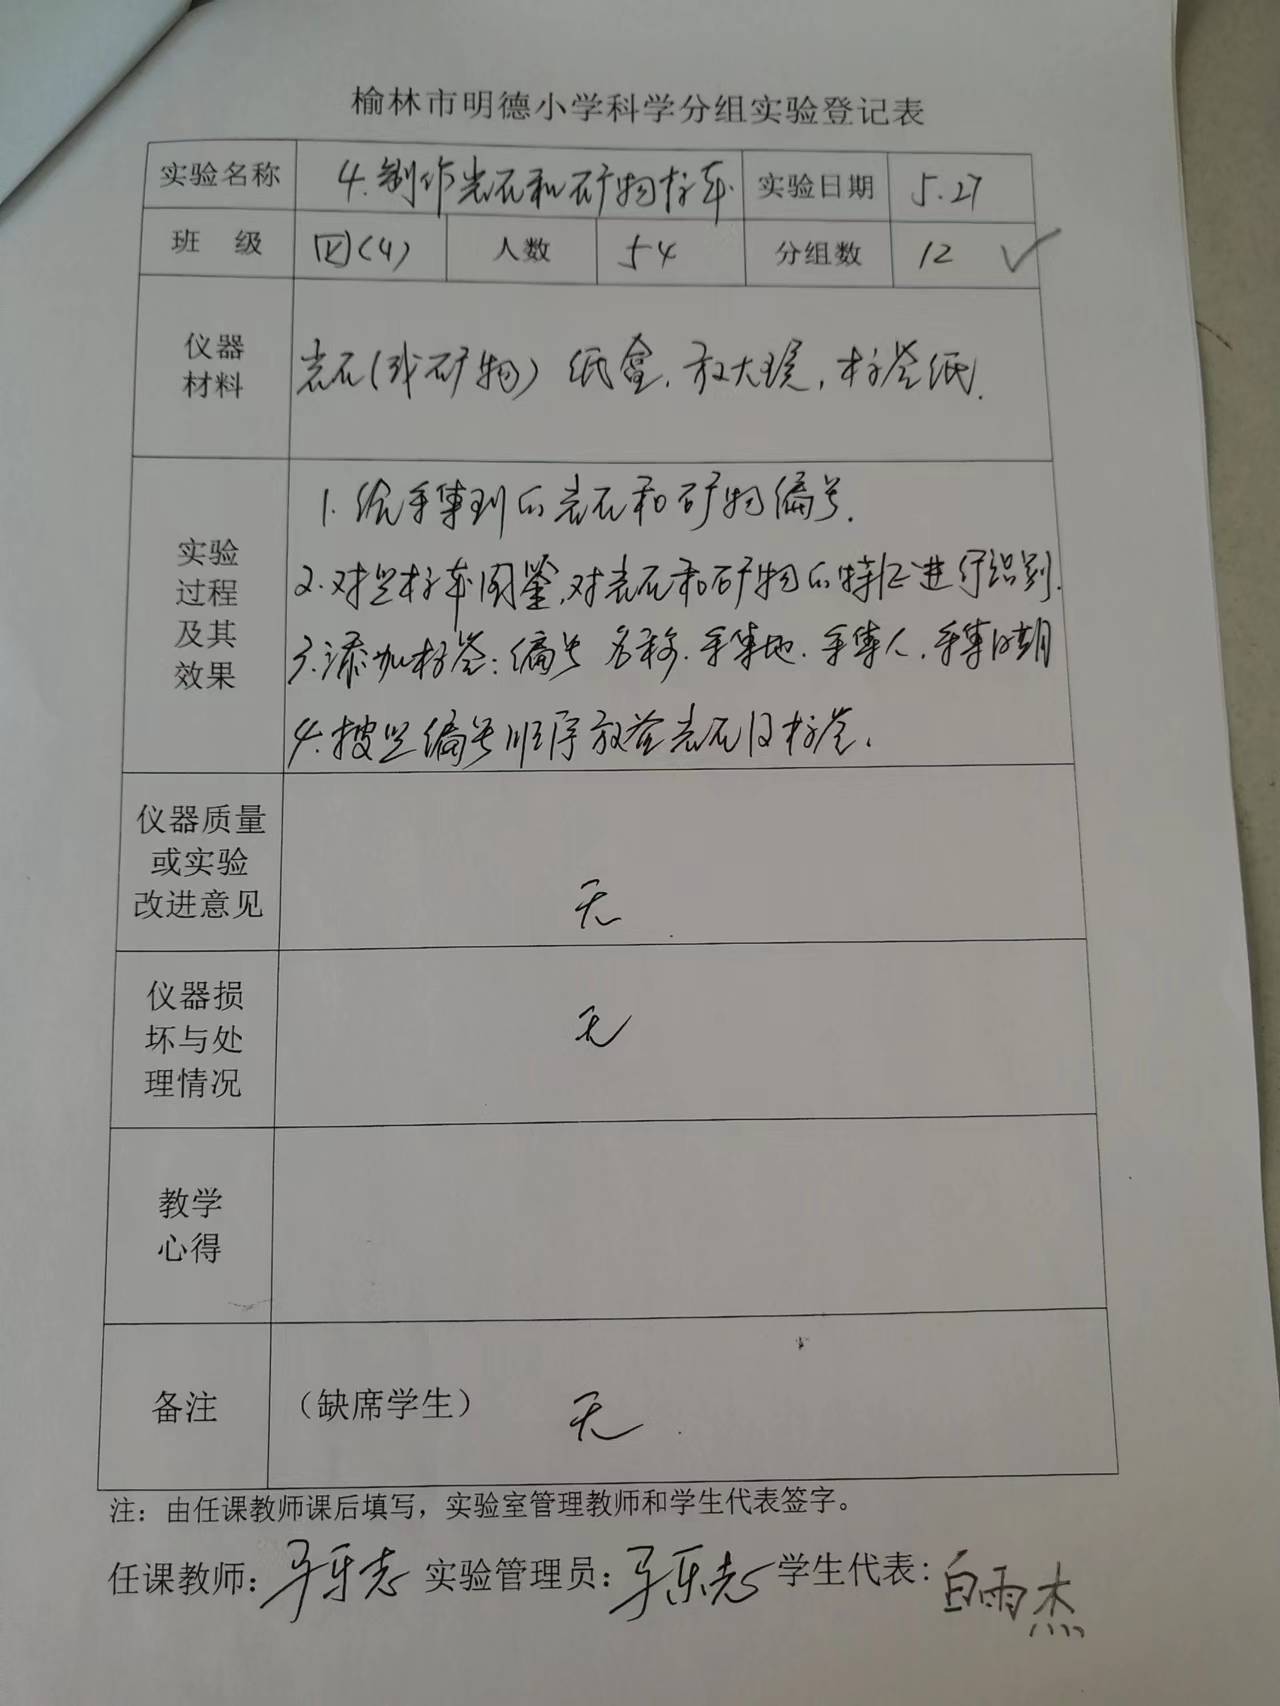 榆林市明德小学科学分组实验登记表
实验名称 4.制作岩石和矿物标本. 实验日期 5.27
班 级 四(4) 人数 54 分组数 12 ✓
仪器
材料
岩石(或矿物) 纸盒,放大镜,标签纸.
实验
过程
及其
效果
1.给采集到的岩石和矿物编号.
2.对照标本图鉴,对岩石和矿物的特征进行识别.
3.添加标签:编号 名称.采集地.采集人.采集日期
4.按照编号顺序放置岩石及标签.
仪器质量
或实验
改进意见
无
仪器损
坏与处
理情况
无
教学
心得
备注 (缺席学生) 无
注:由任课教师课后填写,实验室管理教师和学生代表签字。
任课教师: 实验管理员: 学生代表:白雨杰